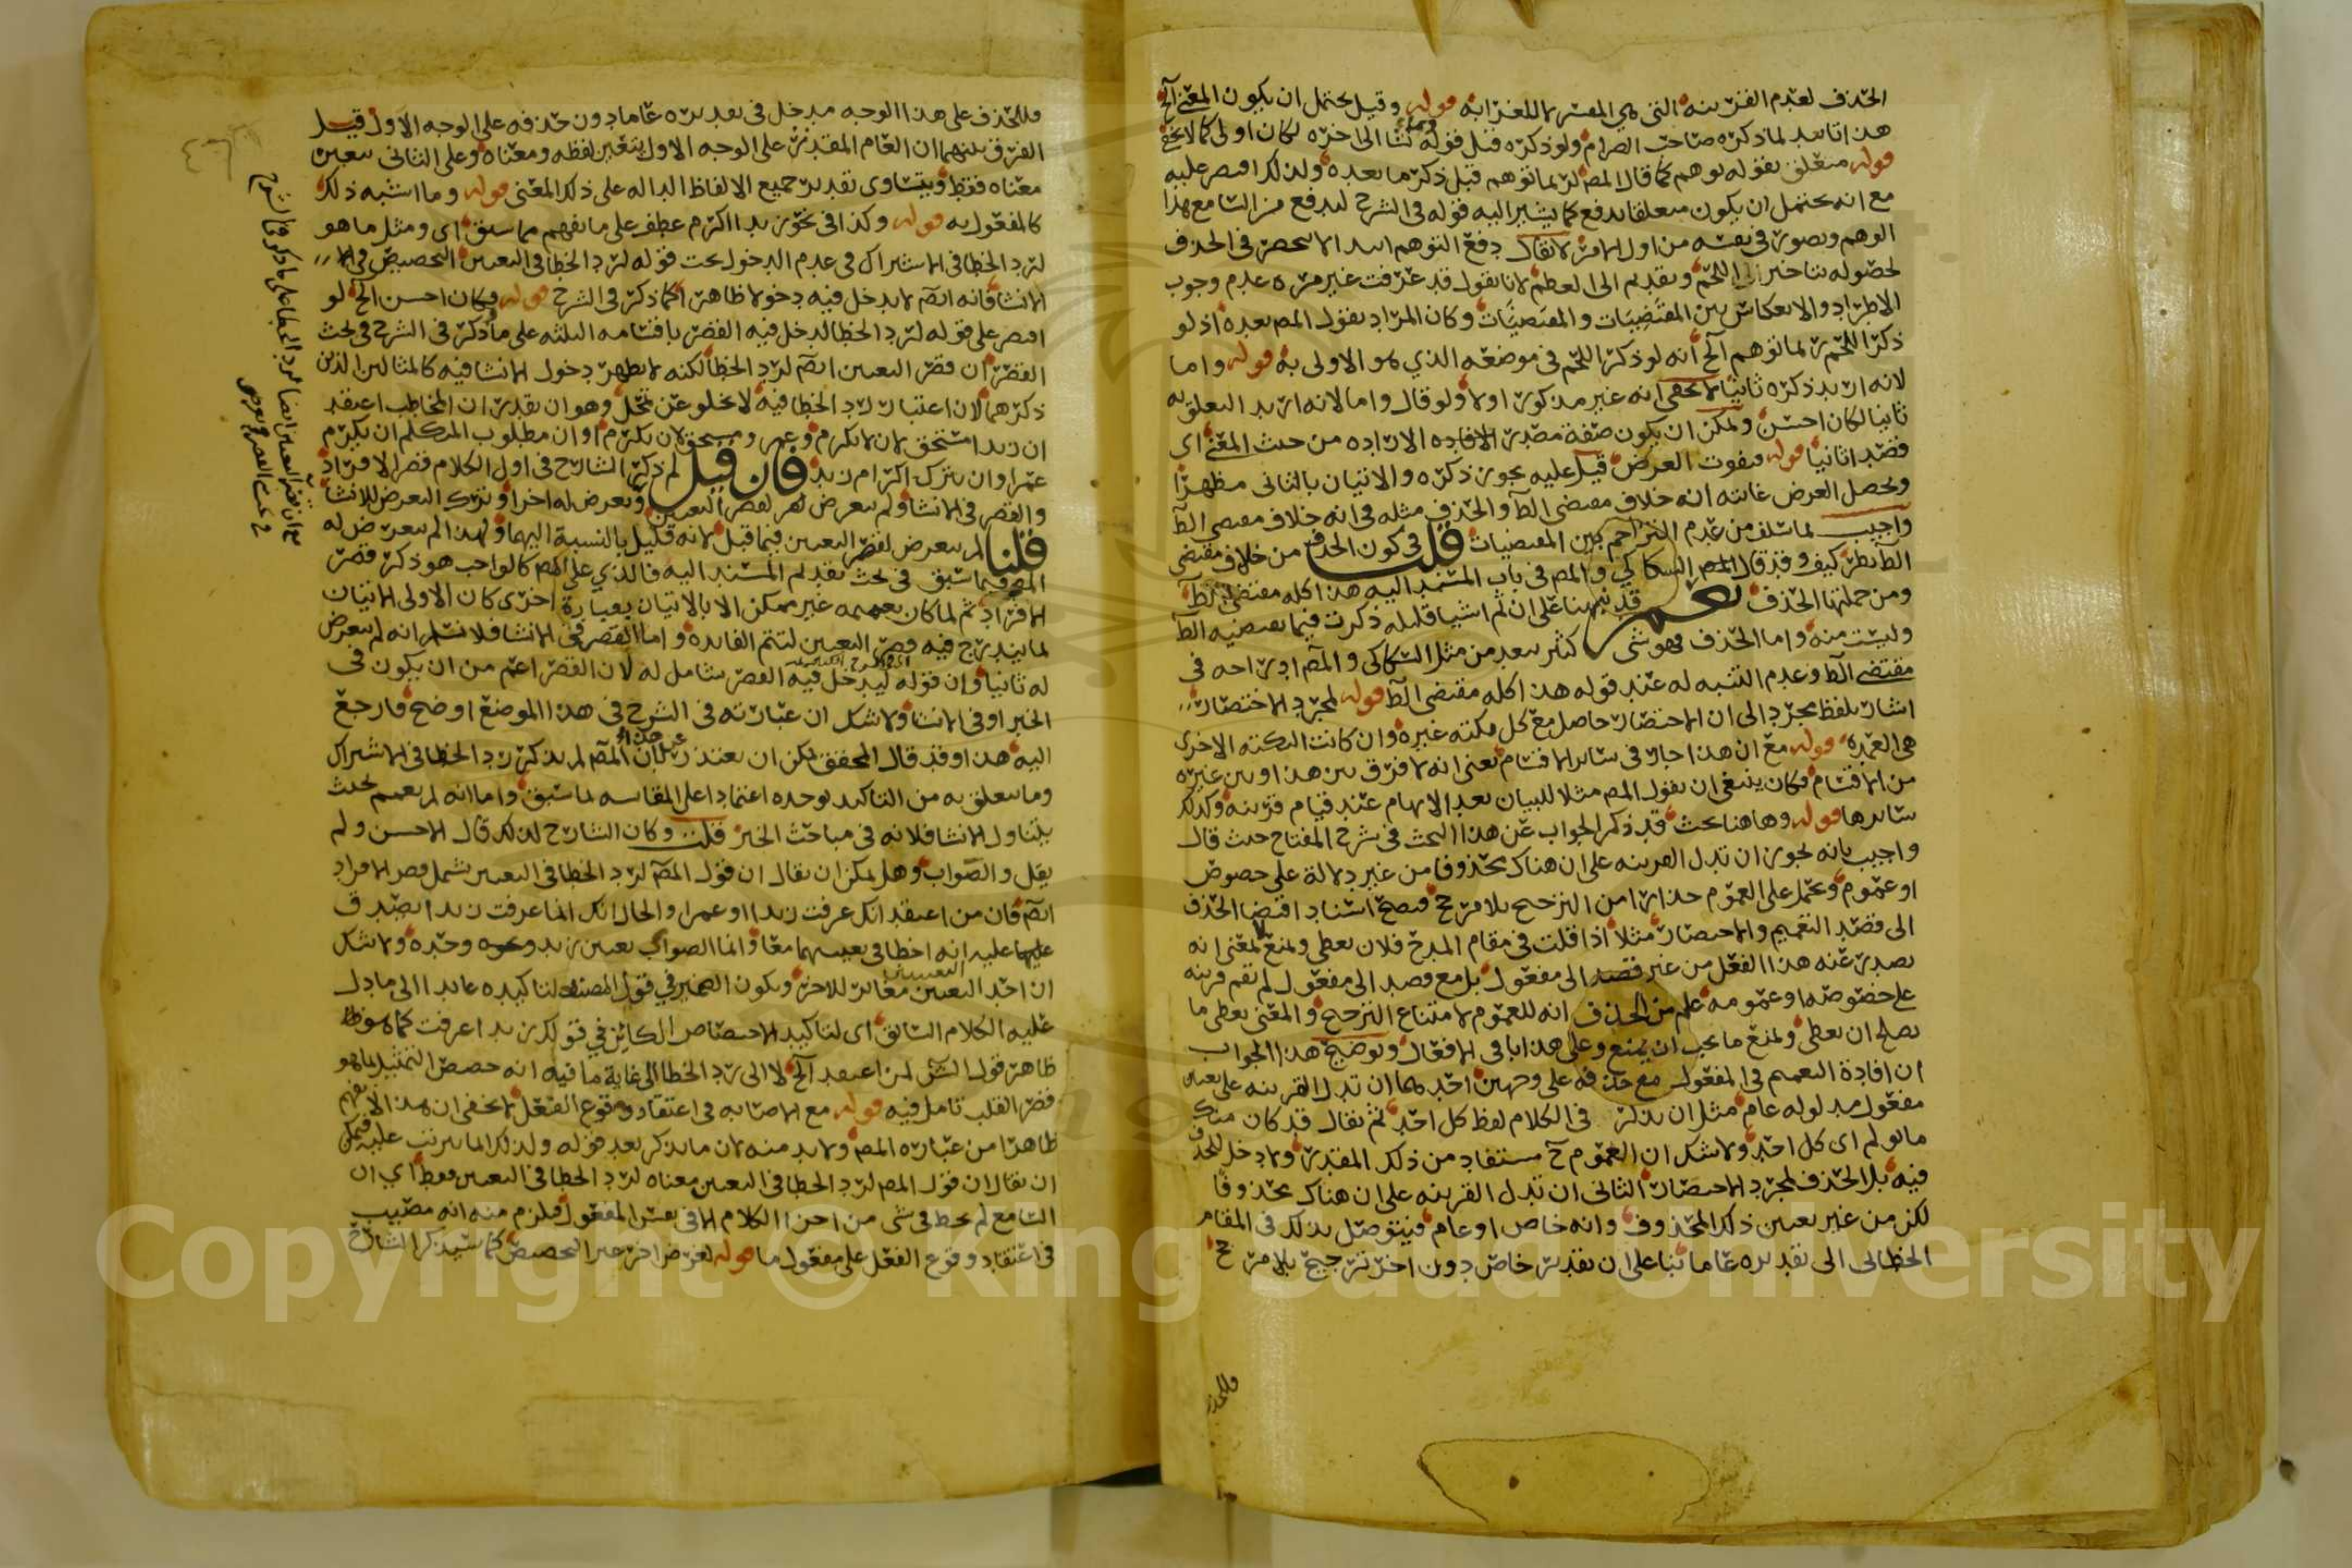 الحذف لعدم القرينة التي هي المفسرة للغرابة قوله وقيل يحتمل ان يكون المعنى الخ
هذا تاييد لما ذكره صاحب الصرام ولو ذكره قبل قوله كنا الى اخره لكان اولى كما لا يخفى
قوله متعلق بقوله توهم كما قال المص لربما توهم قبل ذكر ما بعده ولذلك اقتصر عليه
مع انه يحتمل ان يكون متعلقا بدفع كما يشير اليه قوله في الشرح ليدفع من السامع هذا
الوهم ويصور في نفسه من اول الامر لا يقال دفع التوهم ابتدا لا ينحصر في الحذف
لحصوله بتاخير اللحم وتقديم الى العظم لانا نقول قد عرفت غير مرة عدم وجوب
الاطراد والانعكاس بين المقتضِيات والمقتضَيات وكان المراد بقول المص بعده اذ لو
ذكر اللحم لربما توهم الخ انه لو ذكر اللحم في موضعه الذي هو الاولى به قوله واما
لانه اريد ذكره ثانيا لا يخفى انه غير مذكور اولا ولو قال واما لانه اريد التعلق به
ثانيا لكان احسن ويمكن ان يكون صفة مصدر الارادة من حيث المعنى اى
قصدا ثانيا قوله فيفوت الغرض قيل عليه يجوز ذكره والاتيان بالثاني مظهرا
ويحصل الغرض غايته انه خلاف مقتضى الظ والحذف مثله في انه خلاف مقتضى الظ
واجيب لما سلف من عدم التزاحم بين المقتضيات قلت في كون الحذف من خلاف مقتضى
الظ نظر كيف وقد قال السكاكي والمص في باب المسند اليه هذا كله مقتضى الظ
ومن جملتها الحذف نعم قد نبهنا على ان ثم اشيا قليلة ذكرت فيما يقتضيه الظ
وليست منه واما الحذف فهو شي كثير يبعد من مثل السكاكي والمص ادراجه في
مقتضى الظ وعدم التنبه له عند قوله هذا كله مقتضى الظ قوله لمجرد الاختصار
اشار بلفظ مجرد الى ان الاختصار حاصل مع كل نكتة غيره وان كانت النكتة الاخرى
هي العمدة قوله مع ان هذا جار في سائر الاقسام يعني انه لا فرق بين هذا وبين غيره
من الاقسام فكان ينبغي ان يقول المص مثلا للبيان بعد الابهام عند قيام قرينة وكذلك
سائرها قوله وهاهنا بحث قد ذكر الجواب عن هذا البحث في شرح المفتاح حيث قال
واجيب بانه يجوز ان تدل القرينة على ان هناك محذوفا من غير دلالة على خصوص
او عموم ويحمل على العموم حذارا من الترجيح بلا مرجح فيصح اسناد اقتضا الحذف
الى قصد التعميم والاختصار مثلا اذا قلت في مقام المدح فلان يعطى ويمنع لا لمعنى انه
يصدر عنه هذا الفعل من غير قصد الى مفعول بل مع قصد الى مفعول لم تقم قرينة
على خصوصه او عمومه علم من الحذف انه للعموم لامتناع الترجيح والمعنى يعطى ما
يصلح ان يعطى ويمنع ما يجب ان يمنع وعلى هذا باقي الافعال وتوضيح هذا الجواب
ان افادة التعميم في المفعول مع حذفه على وجهين احدهما ان تدل القرينة على تعين
مفعول مدلوله عام مثل ان يذكر في الكلام لفظ كل احد ثم يقال قد كان منك
ما يولم اى كل احد ولا شك ان العموم ح مستفاد من ذلك المقدر ولا دخل للحذف
فيه بل الحذف لمجرد الاختصار الثاني ان تدل القرينة على ان هناك محذوفا
لكن من غير تعيين ذلك المحذوف وانه خاص او عام فيتوصل بذلك في المقام
الخطابى الى تقديره عاما بنا على ان تقدير خاص دون اخر ترجيح بلا مرجح
وللحذف
وللحذف على هذا الوجه مدخل في تقديره عاما دون حذفه على الوجه الاول قيل
الفرق بينهما ان العام المقدر على الوجه الاول يتعين لفظه ومعناه وعلى الثاني يتعين
معناه فقط ويتساوى تقدير جميع الالفاظ الدالة على ذلك المعنى قوله وما اشبه ذلك
كالمفعول به قوله وكذا في نحو زيدا اكرم عطف على ما يفهم مما سبق اى ومثل ما هو
لرد الخطا في الاشتراك في عدم الدخول تحت قوله لرد الخطا في التعيين التخصيص في
الانشا فانه ايضا لا يدخل فيه دخولا ظاهرا كما ذكر في الشرح قوله وكان احسن الخ لو
اقتصر على قوله لرد الخطا ليدخل فيه القصر باقسامه الثلثة على ما ذكر في الشرح في بحث
القصر ان قصر التعيين ايضا لرد الخطا لكنه لا يظهر دخول الانشا فيه كالمثالين الذين
ذكرهما لان اعتبار رد الخطا فيه لا يخلو عن تمحل وهو ان يقدر ان المخاطب اعتقد
ان زيدا مستحق لان لا يكرم وعمرو مستحق لان يكرم او ان مطلوب المتكلم ان يكرم
عمرا وان يترك اكرام زيد فان قيل لم ذكر الشارح في اول الكلام قصر الافراد
والقصر في الانشا ولم يتعرض لقصر التعيين وتعرض له اخرا وترك التعرض للانشا
قلنا لم يتعرض لقصر التعيين فيما قبل لانه قليل بالنسبة اليهما ولهذا لم يتعرض له
المص فيما سبق في بحث تقديم المسند اليه فالذي على المص كالواجب هو ذكر قصر
الافراد ثم لما كان تعميمه غير ممكن الا بالاتيان بعبارة اخرى كان الاولى الاتيان
لما يندرج فيه قصر التعيين لتتم الفائدة واما القصر في الانشا فلا نسلم انه لم يتعرض
له ثانيا وان قوله ليدخل فيه القصر شامل له لان القصر اعم من ان يكون في
الخبر او في الانشا ولا شك ان عبارته في الشرح في هذا الموضع اوضح فارجع
اليه هذا وقد قال المحقق يمكن ان يعتذر بان المص لم يذكر رد الخطا في الاشتراك
وما يتعلق به من التاكيد بوحده اعتمادا على المقايسة لما سبق واما انه لم يعمم بحيث
يتناول الانشا فلانه في مباحث الخبر قلت وكان الشارح لذلك قال الاحسن ولم
يقل والصواب وهل يمكن ان يقال ان قول المص لرد الخطا في التعيين يشمل قصر الافراد
ايضا فان من اعتقد انك عرفت زيدا وعمرا والحال انك انما عرفت زيدا يصدق
عليه انه اخطا في تعيينهما معا وانما الصواب تعيين زيد وحده ولا شك
ان احد التعيينين مغاير للاخر ويكون الضمير في قول المصنف لتاكيده عايدا الى ما دل
عليه الكلام السابق اى لتاكيد الاختصاص الكائن في قولك زيدا عرفت كما هو
ظاهر قول الش لمن اعتقد الخ لا الى رد الخطا الى غاية ما فيه انه خصص التمثيل بما هو
قصر القلب تامل فيه قوله مع الاصابة في اعتقاد وقوع الفعل لا يخفى ان هذا لا يفهم
ظاهرا من عبارة المص ولا بد منه لان ما يذكر بعد قوله ولذلك انما يترتب عليه فيمكن
ان يقال ان قول المص لرد الخطا في التعيين معناه لرد الخطا في التعيين فقط اي ان
السامع لم يخط في شي من اجزا الكلام الا في تعين المفعول فلزم منه انه مصيب
في اعتقاد وقوع الفعل على مفعول ما قوله لغرض اخر غير التخصيص كما سيذكر الشارح